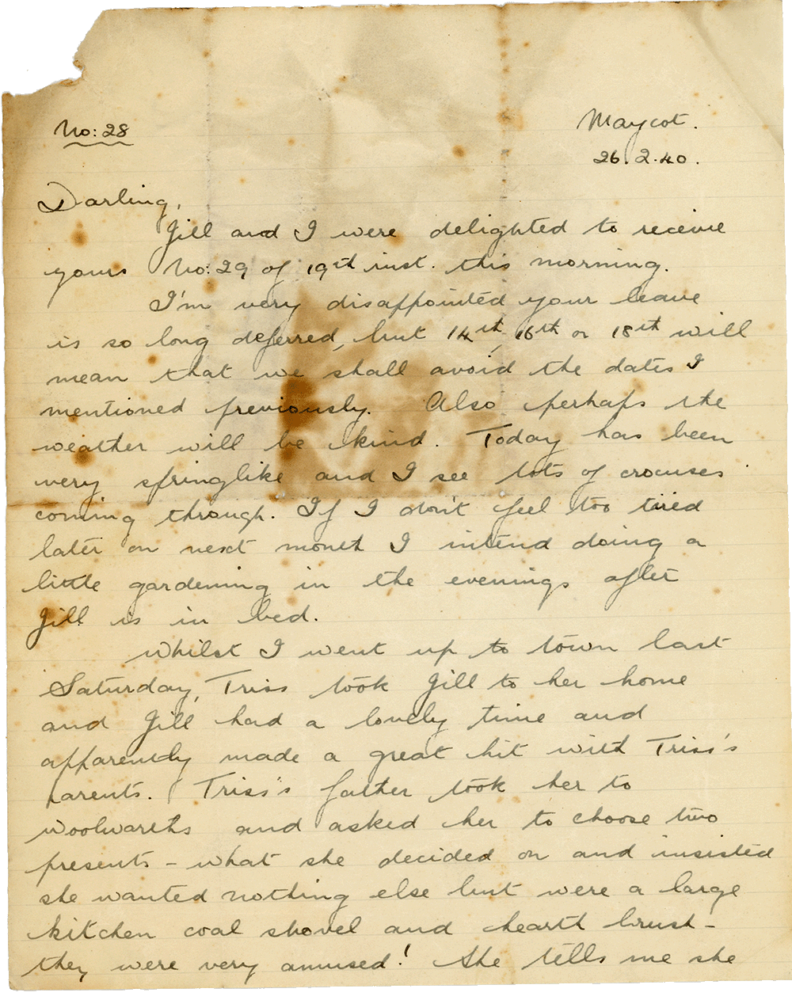 No: 28
Maycot.
26.2.40.
Darling,
Jill and I were delighted to receive
yours No: 29 of 19th inst. this morning.
I'm very disappointed your leave
is so long deferred, but 14th, 16th or 18th will
mean that we shall avoid the dates I
mentioned previously. Also perhaps the
weather will be kind. Today has been
very springlike and I see lots of crocuses
coming through. If I don't feel too tired
later on next month I intend doing a
little gardening in the evenings after
Jill is in bed.
Whilst I went up to town last
Saturday, Triss took Jill to her home
and Jill had a lovely time and
apparently made a great hit with Triss's
parents. Triss's father took her to
Woolwarths and asked her to choose two
presents - what she decided on and insisted
she wanted nothing else but were a large
kitchen coal shovel and hearth brush -
they were very amused! She tells me she